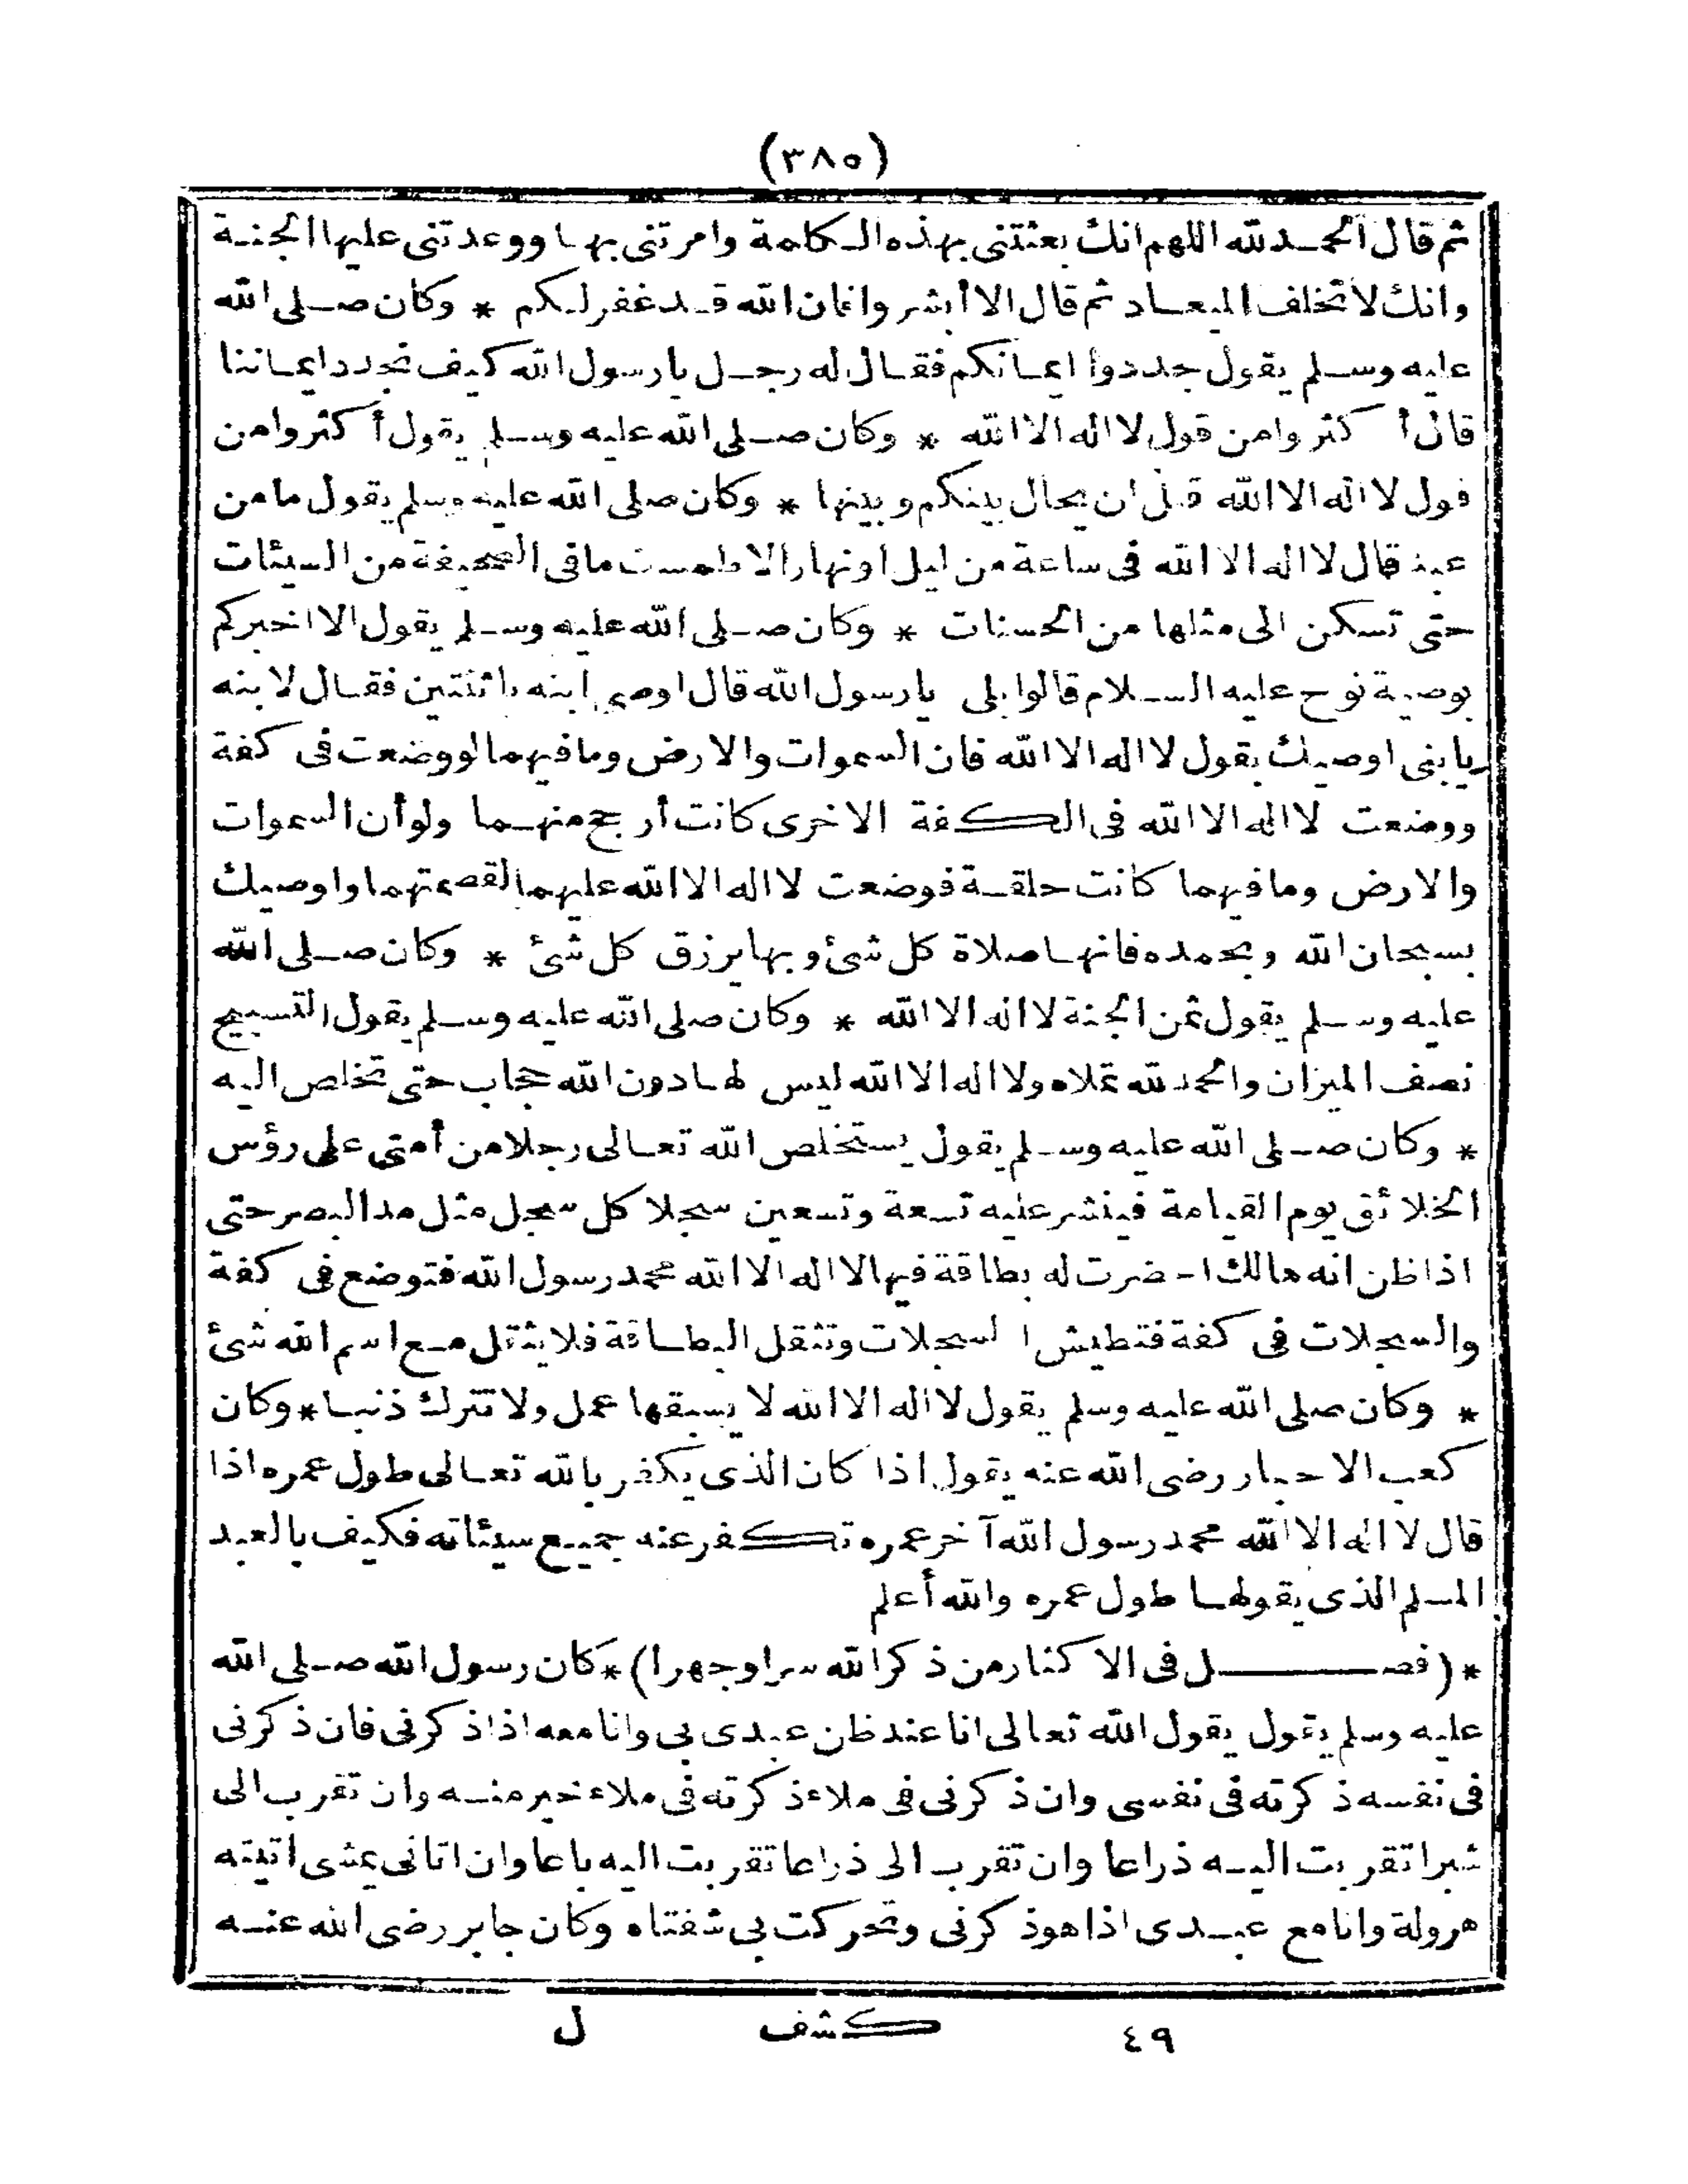 (٣٨٥)
ثم قال الحمد لله اللهم انك بعثتنى بهذه الكامة وامرتنى بها ووعدتنى عليها الجنة
وانك لا تخلف الميعاد ثم قال الا أبشروا فان الله قد غفر لكم * وكان صلى الله
عليه وسلم يقول جددوا ايمانكم فقال له رجل يا رسول الله كيف نجدد ايماننا
قال أكثروا من قول لا اله الا الله * وكان صلى الله عليه وسلم يقول أكثروا من
قول لا اله الا الله قبل ان يحال بينكم وبينها * وكان صلى الله عليه وسلم يقول ما من
عبد قال لا اله الا الله فى ساعة من ليل اونهار الا طمست ما فى الصحيفة من السيئات
حتى تسكن الى مثلها من الحسنات * وكان صلى الله عليه وسلم يقول الا اخبركم
بوصية نوح عليه السلام قالوا بلى يا رسول الله قال اوصى ابنه باثنتين فقال لابنه
يا بنى اوصيك بقول لا اله الا الله فان السموات والارض وما فيهما لو وضعت فى كفة
ووضعت لا اله الا الله فى الكفة الاخرى كانت أرجح منهما ولو أن السموات
والارض وما فيهما كانت حلقة فوضعت لا اله الا الله عليهما لقصمتهما واوصيك
بسبحان الله وبحمده فانها صلاة كل شئ وبها يرزق كل شئ * وكان صلى الله
عليه وسلم يقول ثمن الجنة لا اله الا الله * وكان صلى الله عليه وسلم يقول التسبيح
نصف الميزان والحمد لله تملاه ولا اله الا الله ليس لها دون الله حجاب حتى تخلص اليه
* وكان صلى الله عليه وسلم يقول يستخلص الله تعالى رجلا من أمتى على رؤس
الخلائق يوم القيامة فينشر عليه تسعة وتسعين سجلا كل سجل مثل مد البصر حتى
اذا ظن انه هالك احضرت له بطاقة فيها لا اله الا الله محمد رسول الله فتوضع فى كفة
والسجلات فى كفة فتطيش السجلات وتثقل البطاقة فلا يثقل مع اسم الله شئ
* وكان صلى الله عليه وسلم يقول لا اله الا الله لا يسبقها عمل ولا تترك ذنبا * وكان
كعب الاحبار رضى الله عنه يقول اذا كان الذى يكفر بالله تعالى طول عمره اذا
قال لا اله الا الله محمد رسول الله آخر عمره تكفر عنه جميع سيئاته فكيف بالعبد
المسلم الذى يقولها طول عمره والله أعلم
* (فصل فى الاكثار من ذكر الله سرا وجهرا) * كان رسول الله صلى الله
عليه وسلم يقول يقول الله تعالى انا عند ظن عبدى بى وانا معه اذا ذكرنى فان ذكرنى
فى نفسه ذكرته فى نفسى وان ذكرنى فى ملاء ذكرته فى ملاء خير منه وان تقرب الى
شبرا تقربت اليه ذراعا وان تقرب الى ذراعا تقربت اليه باعا وان اتانى يمشى اتيته
هرولة وانا مع عبدى اذا هو ذكرنى وتحركت بى شفتاه وكان جابر رضى الله عنه
٤٩ كشف ل